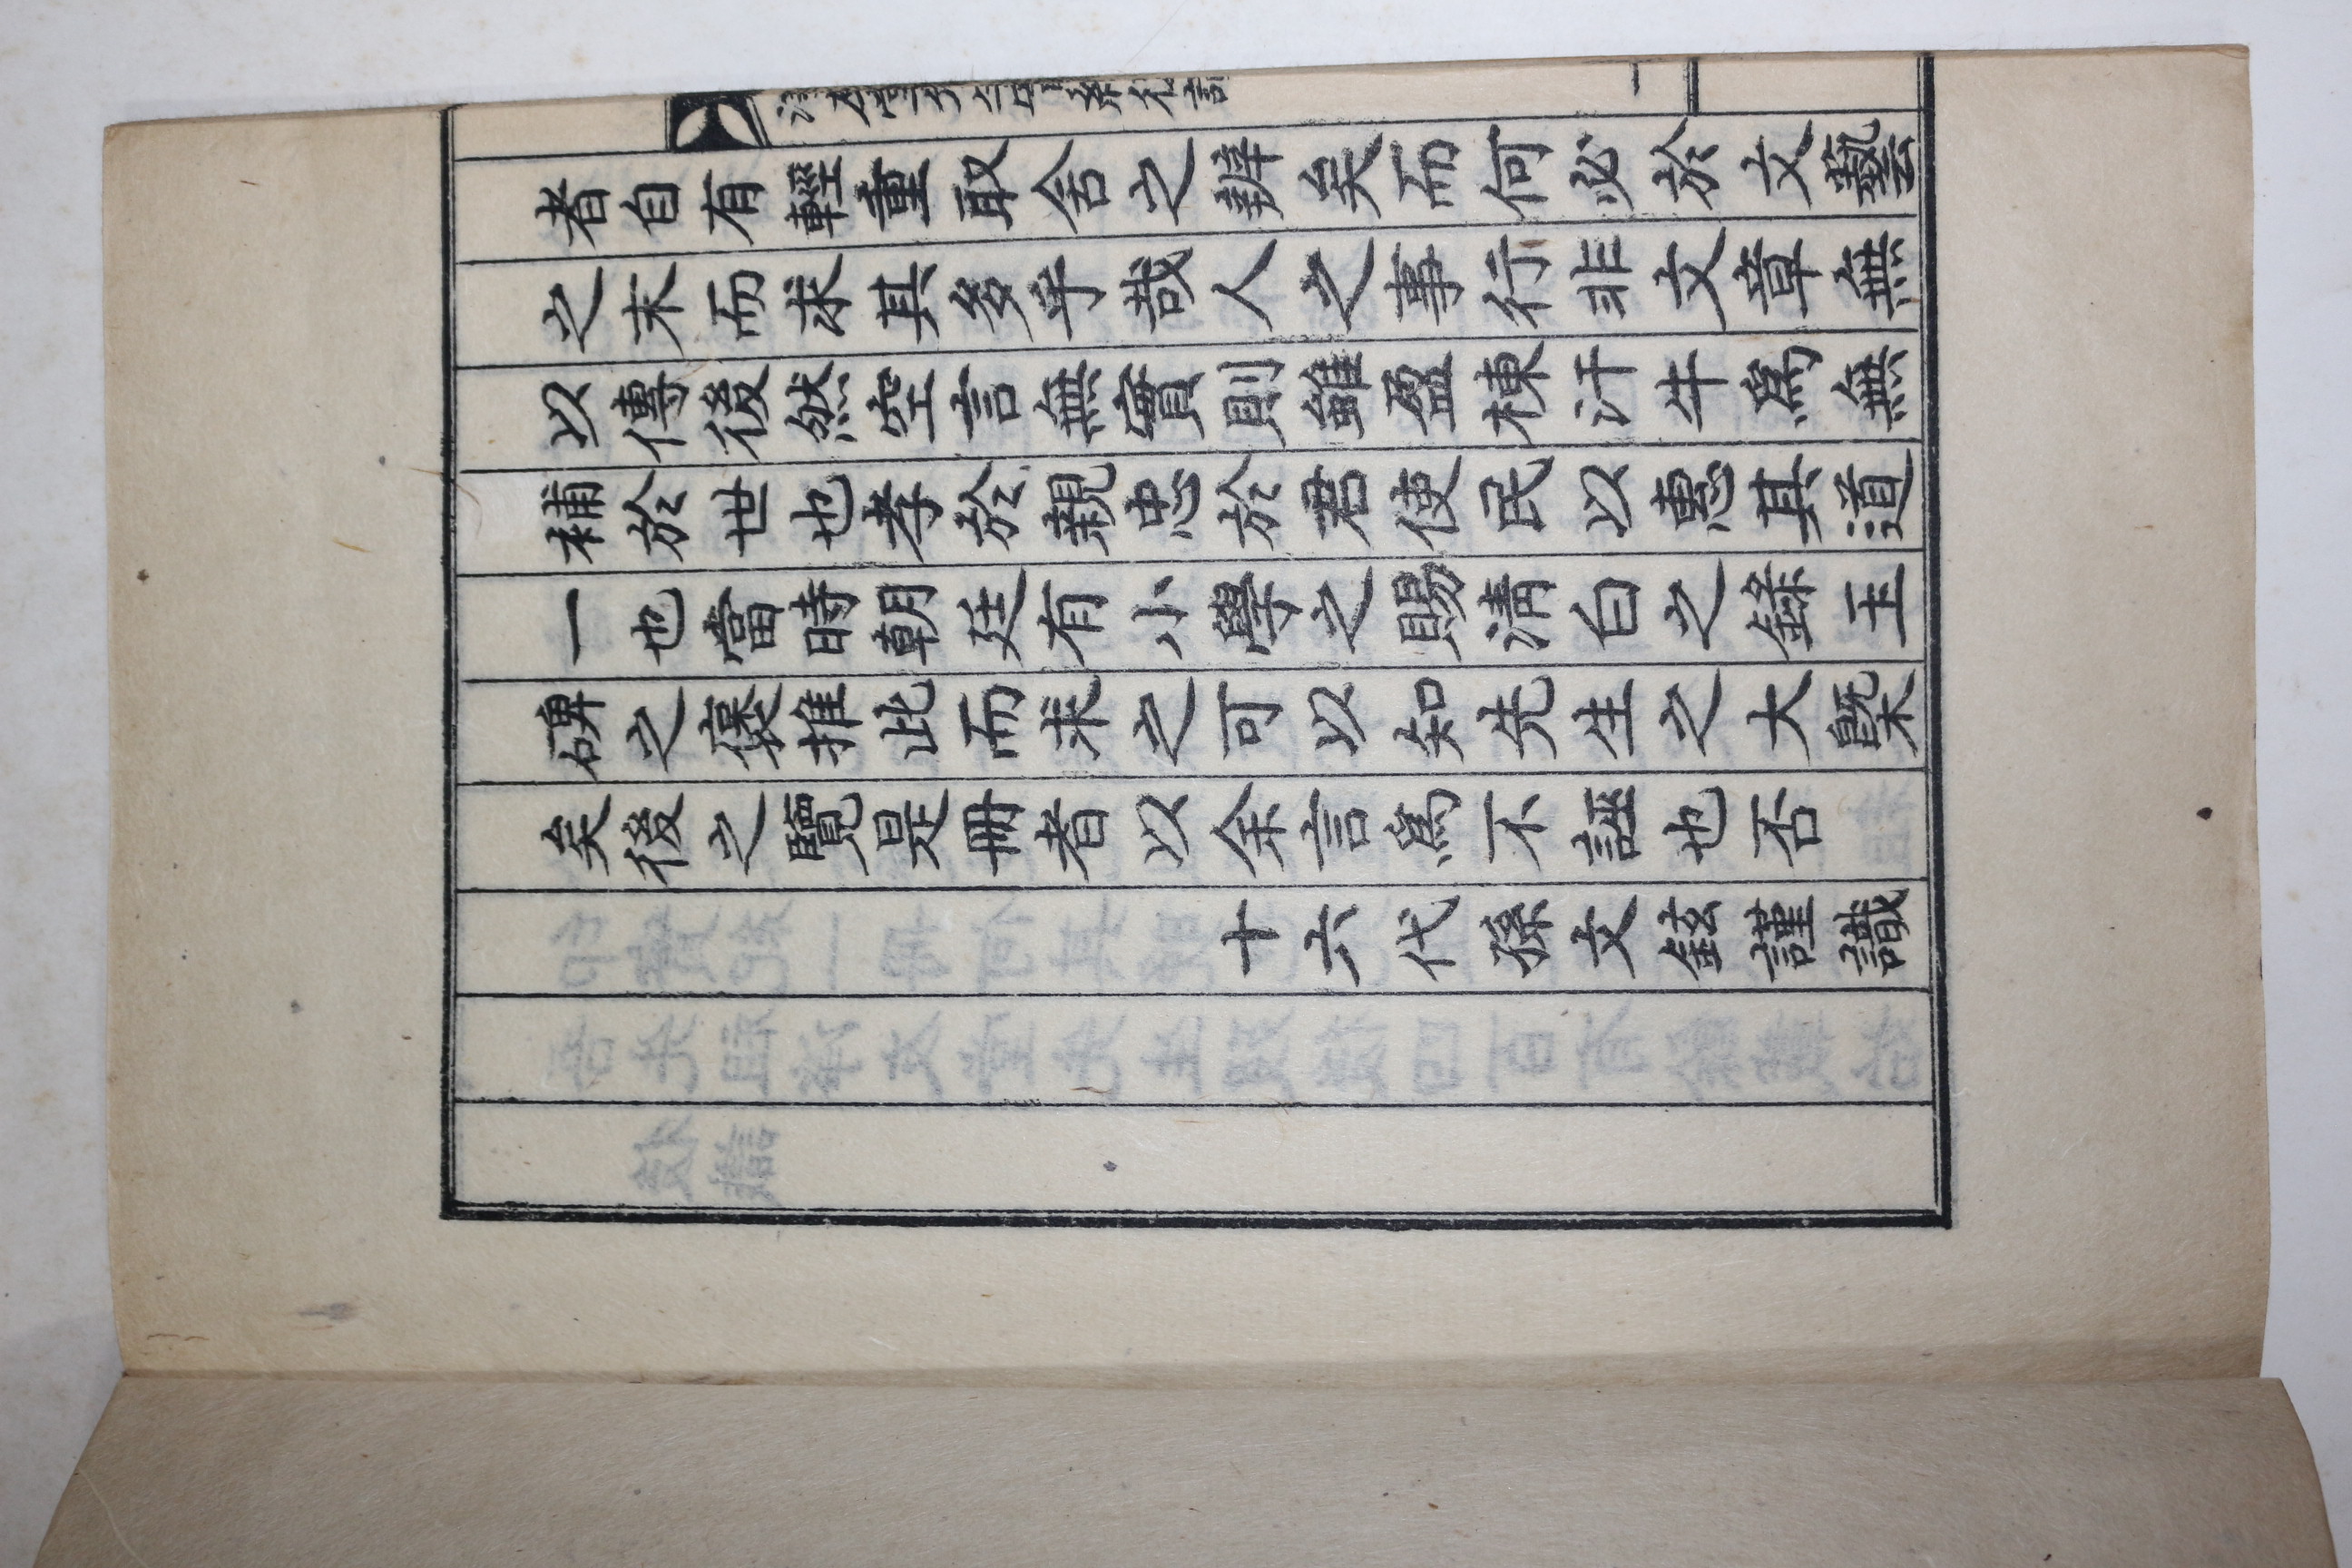 者自有輕重取舍之辨矣而何必於文藝
之末而求其多乎哉人之事行非文章無
以傳後然空言無實則雖盈棟汗牛爲無
補於世也孝於親忠於君使民以惠其道
一也當時朝廷有小學之賜淸白之錄玉
碑之褒推此而求之可以知先生之大槩
矣後之覽是冊者以余言爲不誣也否
十六代孫文鉉謹識